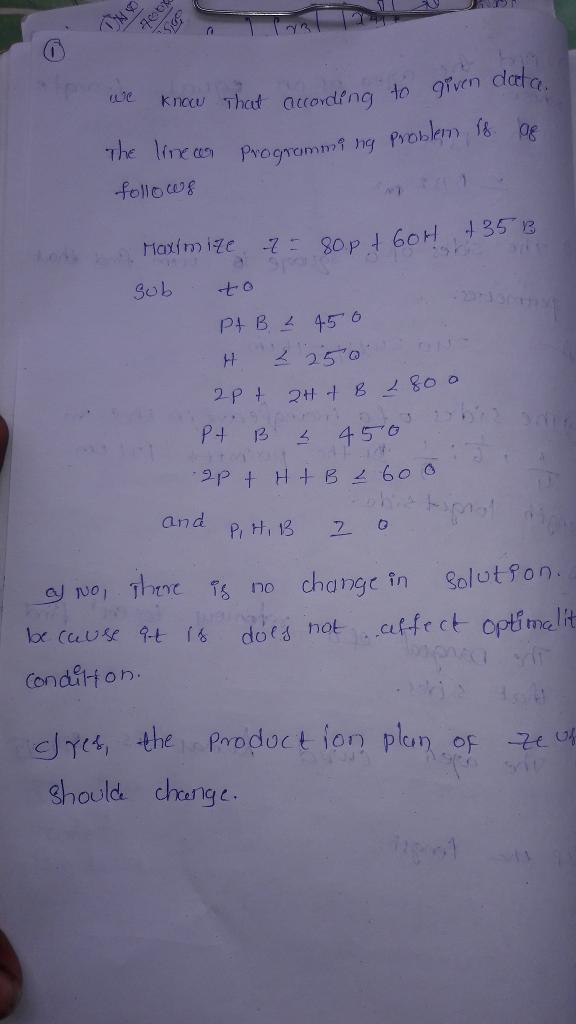 ①
we know That according to given data.
The linear programming problem is as
follows
Maximize Z = 80P + 60H + 35B
Sub to
P+ B ≤ 450
H ≤ 250
2P + 2H + B ≤ 800
P+ B ≤ 450
2P + H + B ≤ 600
and P, H, B ≥ 0
a) No, There is no change in solution.
because it is does not affect optimalit
condition.
c) yes, the production plan of zeus
should change.